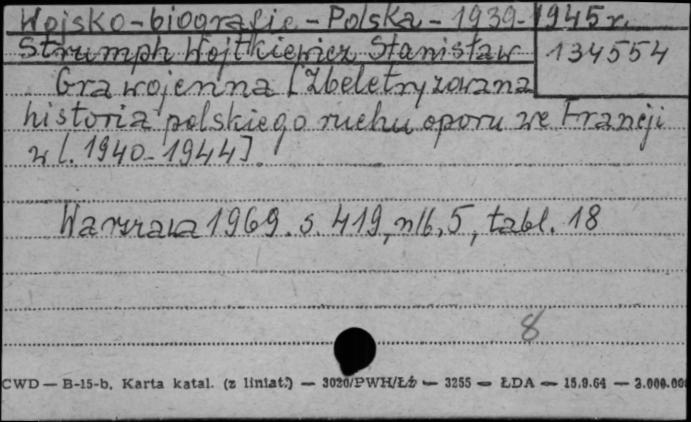 Wojsko-biografie - Polska - 1939-1945 r.
Strumph Wojtkiewicz Stanisław
134554
Gra wojenna [Zbeletryzowana
historia polskiego ruchu oporu we Francji
w l. 1940-1944]
Warszawa 1969. s. 419, nlb, 5, tabl. 18
8
CWD — B-15-b, Karta katal. (z liniat.) — 3020/PWH/Łż — 3255 — ŁDA — 15.9.64 — 3.000.000